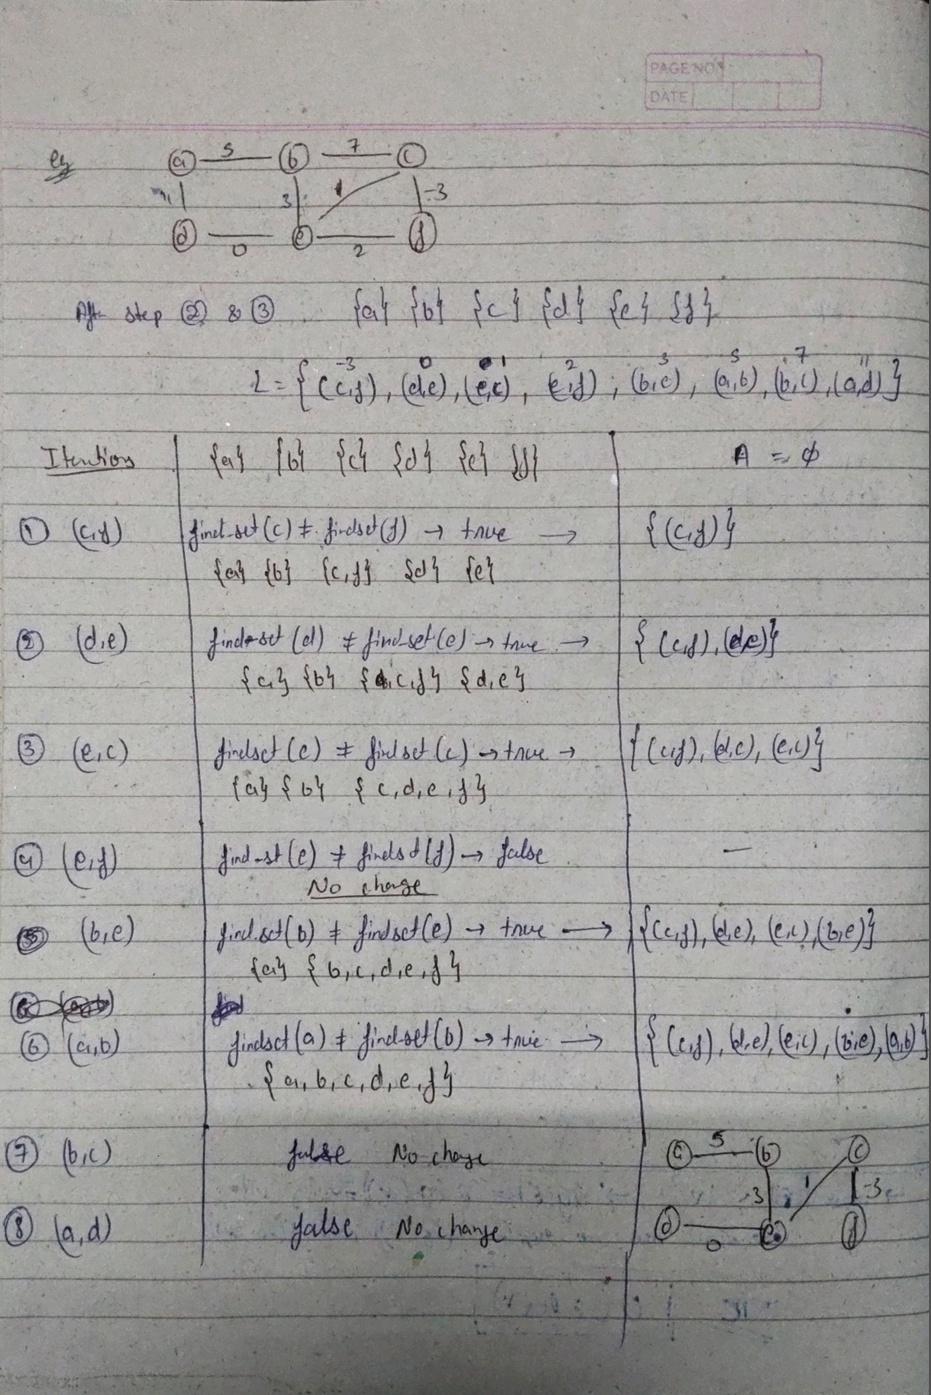 PAGE NO.
DATE
eg
a 5 b 7 c
3 1 -3
d 0 e 2 f
After step ② & ③ {a} {b} {c} {d} {e} {f}
-3 0 1 2 3 5 7 11
L = { (c,f), (d,e), (e,c), (e,f), (b,e), (a,b), (b,c), (a,d) }
Iterations {a} {b} {c} {d} {e} {f} A = ϕ
① (c,f) find-set (c) ≠ findset (f) → true → { (c,f) }
{a} {b} {c,f} {d} {e}
② (d,e) find-set (d) ≠ find-set (e) → true → { (c,f), (d,e) }
{a} {b} {c,f} {d,e}
③ (e,c) findset (e) ≠ findset (c) → true → { (c,f), (d,e), (e,c) }
{a} {b} {c,d,e,f}
④ (e,f) find-set (e) ≠ findset (f) → false —
No change
⑤ (b,e) find-set (b) ≠ findset (e) → true → { (c,f), (d,e), (e,c), (b,e) }
{a} {b,c,d,e,f}
⑥ (a,b) findset (a) ≠ find-set (b) → true → { (c,f), (d,e), (e,c), (b,e), (a,b) }
{a,b,c,d,e,f}
⑦ (b,c) false No change
a 5 b c
3 1 -3
⑧ (a,d) false No change
d 0 e f